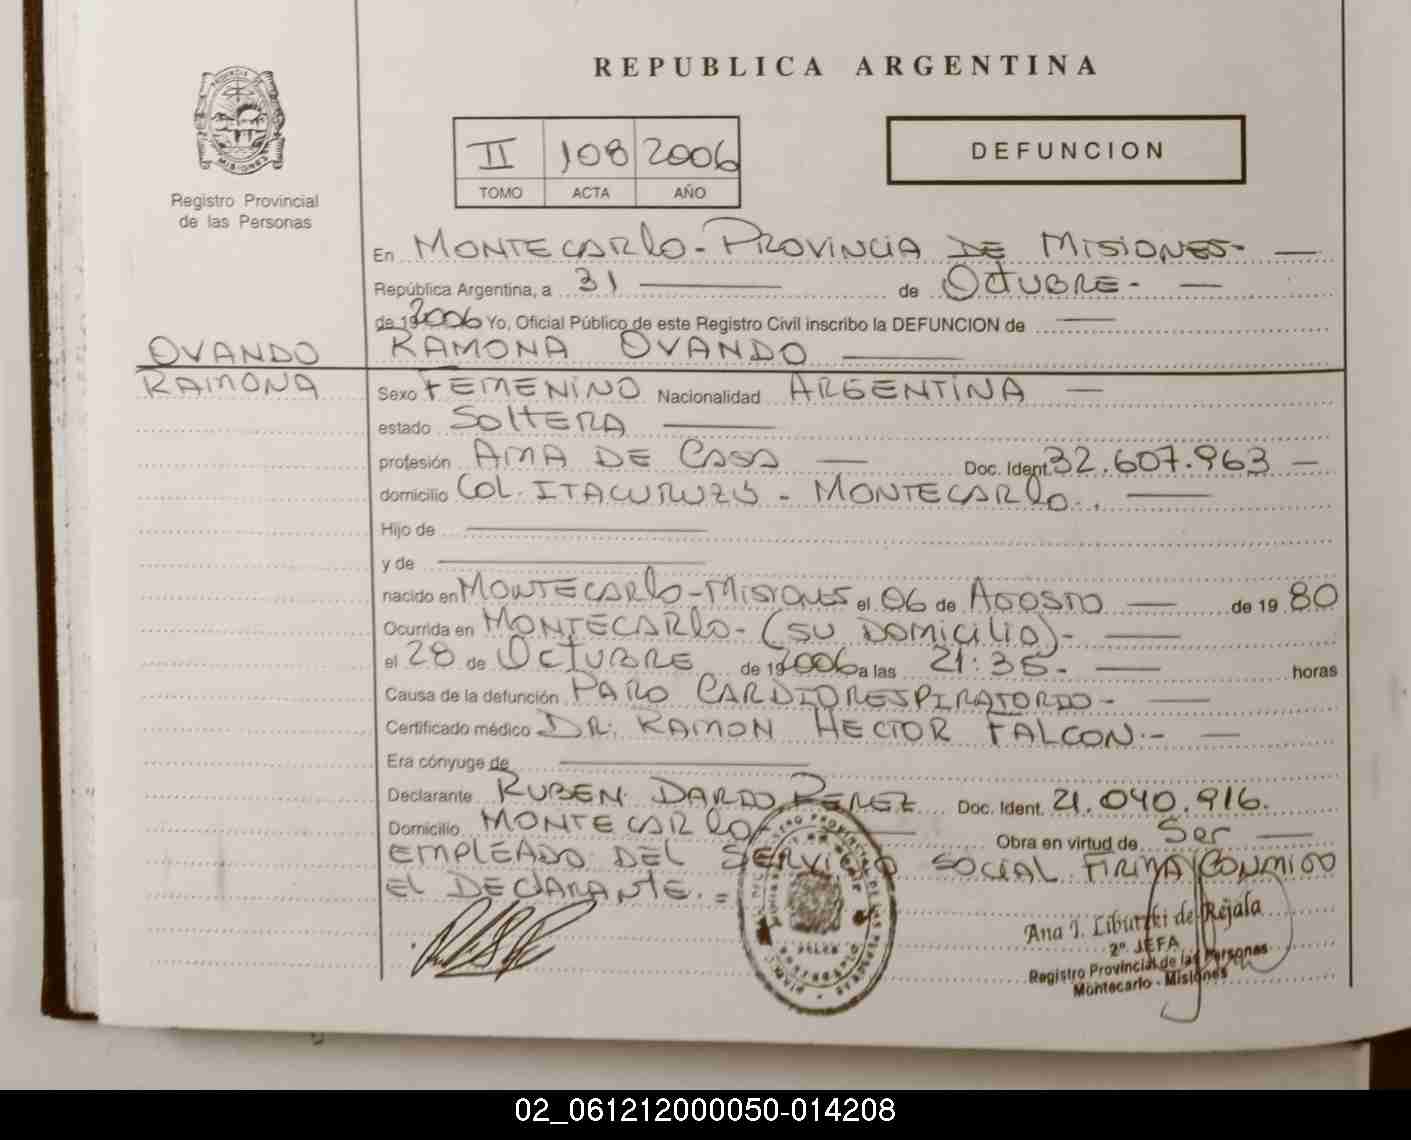 REPUBLICA ARGENTINA
PROVINCIA DE
MISIONES
Registro Provincial
de las Personas
II 108 2006
TOMO ACTA AÑO
DEFUNCION
En MONTECARLO - PROVINCIA DE MISIONES-
República Argentina, a 31 de OCTUBRE-
de 192006 Yo, Oficial Público de este Registro Civil inscribo la DEFUNCION de
OVANDO
RAMONA
RAMONA OVANDO
Sexo FEMENINO Nacionalidad ARGENTINA
estado SOLTERA
profesión AMA DE CASA Doc. Ident. 32.607.963
domicilio COL. ITACURUZÚ - MONTECARLO.
Hijo de
y de
nacido en MONTECARLO-MISIONES el 06 de AGOSTO de 19 80
Ocurrida en MONTECARLO- (SU DOMICILIO)-
el 28 de OCTUBRE de 192006 a las 21:35- horas
Causa de la defunción PARO CARDIORESPIRATORIO-
Certificado médico DR. RAMON HECTOR FALCON.-
Era cónyuge de
Declarante RUBEN DARDO PEREZ Doc. Ident. 21.040.916.
Domicilio MONTECARLO Obra en virtud de Ser
EMPLEADO DEL SERVICIO SOCIAL FIRMA CONMIGO
EL DECLARANTE.=
Ana I. Libutzki de Rejala
2º JEFA
Registro Provincial de las Personas
Montecarlo - Misiones
02_061212000050-014208